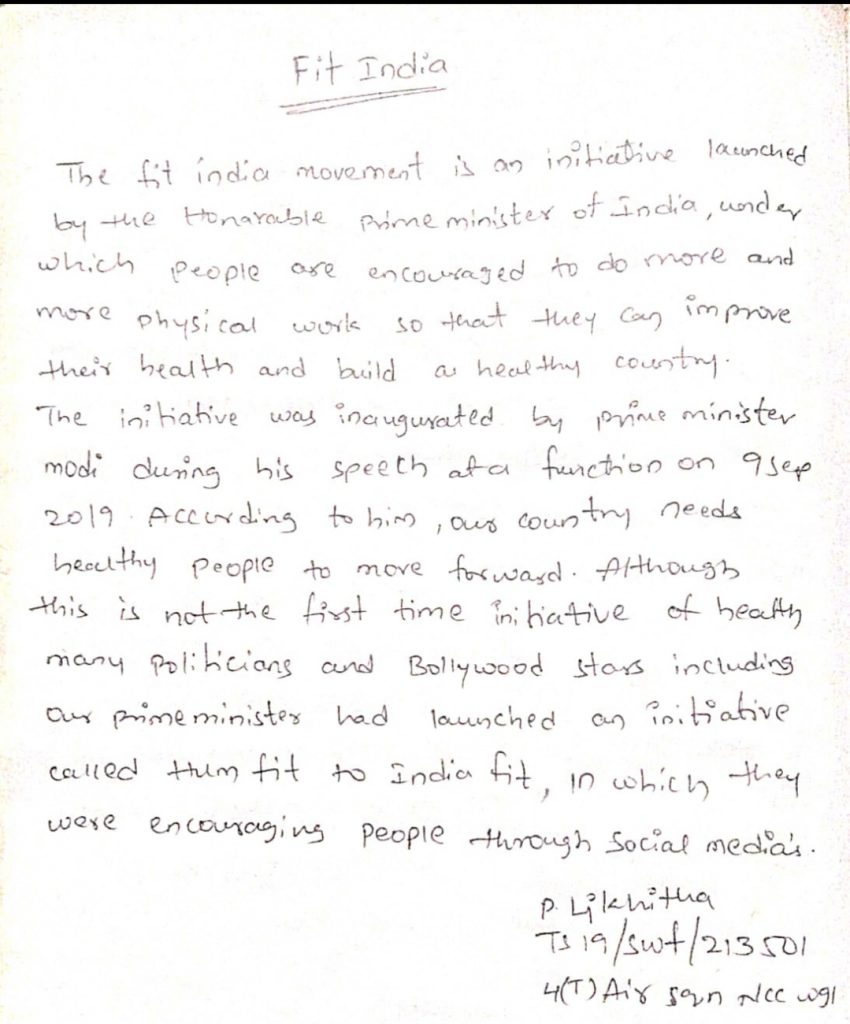 Fit India
The fit india movement is an initiative launched
by the Honarable prime minister of India, under
which people are encouraged to do more and
more physical work so that they can improve
their health and build a healthy country.
The initiative was inaugurated by prime minister
modi during his speech at a function on 9 sep
2019. According to him, our country needs
healthy people to move forward. Although
this is not the first time initiative of health
many politicians and Bollywood stars including
our prime minister had launched an initiative
called Hum fit to India fit, in which they
were encouraging people through social media's.
P. Likhitha
TS 19/swf/213501
4(T) Air sqn Ncc wgl